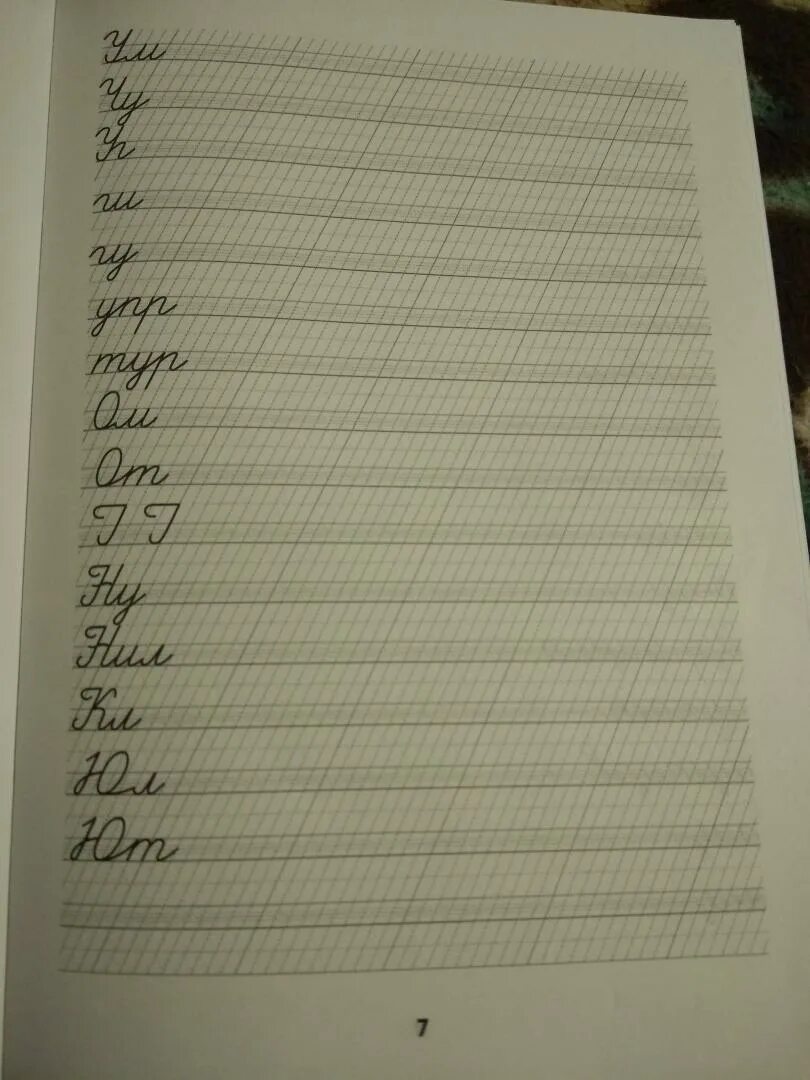 Ум
Чу
ги
гу
упр
тур
Ом
От
Г Г
Ну
Нил
Кл
Юл
Ют
7